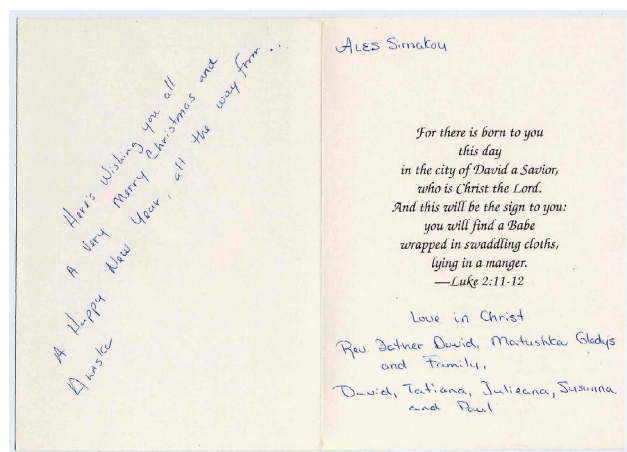 Here's Wishing you all
A Very Merry Christmas and
A Happy New Year, all the way from...
Ales Simakou
For there is born to you
this day
in the city of David a Savior,
who is Christ the Lord.
And this will be the sign to you:
you will find a Babe
wrapped in swaddling cloths,
lying in a manger.
—Luke 2:11-12
Love in Christ
Rev. Father David, Matushka Gladys
and Family.
David, Tatiana, Julieana, Susanna
and Paul